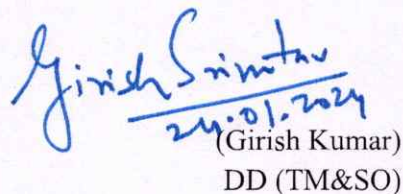 Girish Srivastav
24.01.2024
(Girish Kumar)
DD (TM&SO)